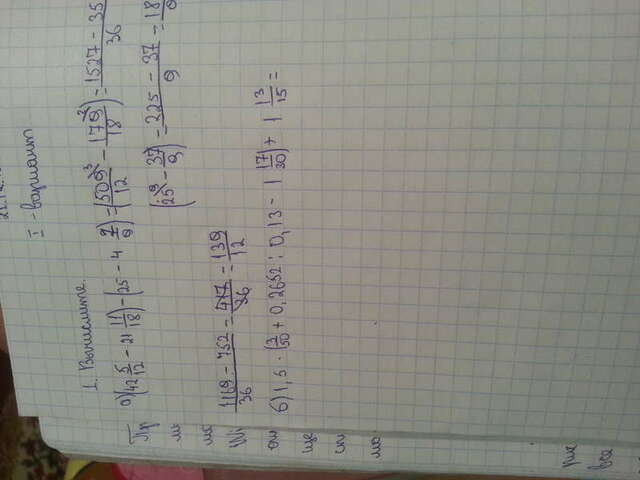 I - вариант
1. Вычислите.
а) (42 5/12 - 21 11/18) - (25 - 4 7/9) = (509/12 - 179/18) = 1527 - 35/36
(25 - 37/9) = 225 - 37/9 = 18/9
1169 - 752/36 = 417/36 = 139/12
б) 1,5 · (3/50 + 0,2652 : 0,13 - 1 17/30) + 1 13/15 =